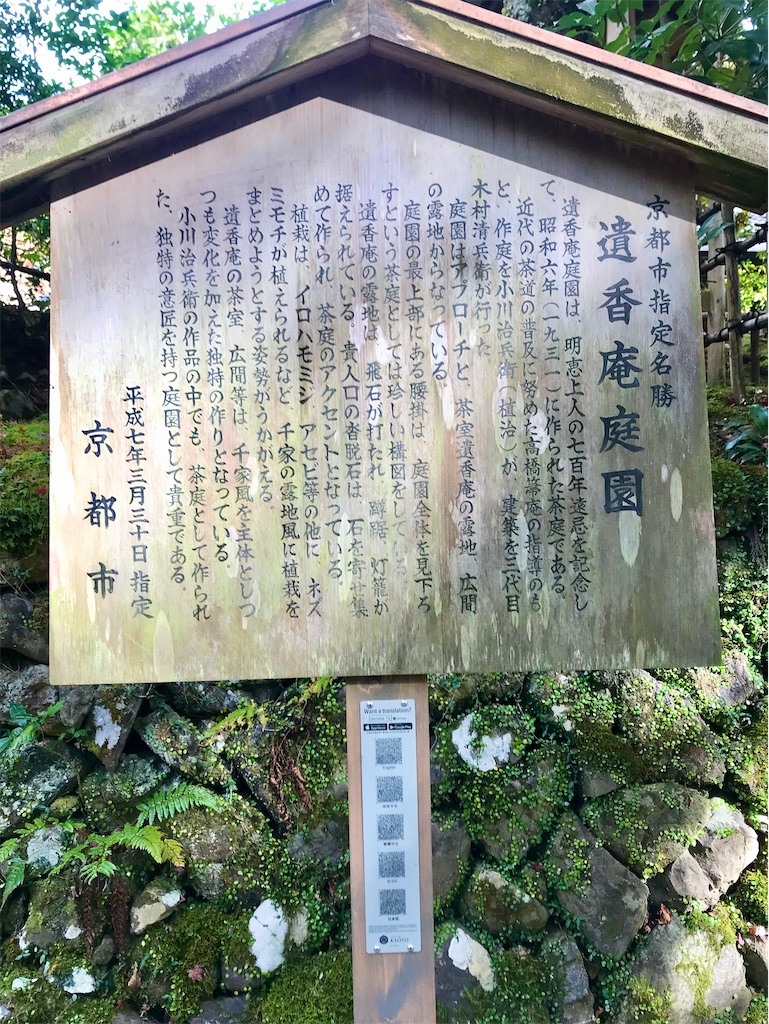 京都市指定名勝
遺香庵庭園
遺香庵庭園は、明恵上人の七百年遠忌を記念し
て、昭和六年(一九三一)に作られた茶庭である。
近代の茶道の普及に努めた高橋箒庵の指導のも
と、作庭を小川治兵衛(植治)が、建築を三代目
木村清兵衛が行った。
庭園はアプローチと、茶室遺香庵の露地、広間
の露地からなっている。
庭園の最上部にある腰掛は、庭園全体を見下ろ
すという茶庭としては珍しい構図をしている。
遺香庵の露地は、飛石が打たれ、蹲踞、灯籠が
据えられている。貴人口の沓脱石は、石を寄せ集
めて作られ、茶庭のアクセントとなっている。
植栽は、イロハモミジ、アセビ等の他に、ネズ
ミモチが植えられるなど、千家の露地風に植栽を
まとめようとする姿勢がうかがえる。
遺香庵の茶室、広間等は、千家風を主体としつ
つも変化を加えた独特の作りとなっている。
小川治兵衛の作品の中でも、茶庭として作られ
た、独特の意匠を持つ庭園として貴重である。
平成七年三月三十日 指定
京都市
Want a translation?
English
한국어
日本語
KYOTO